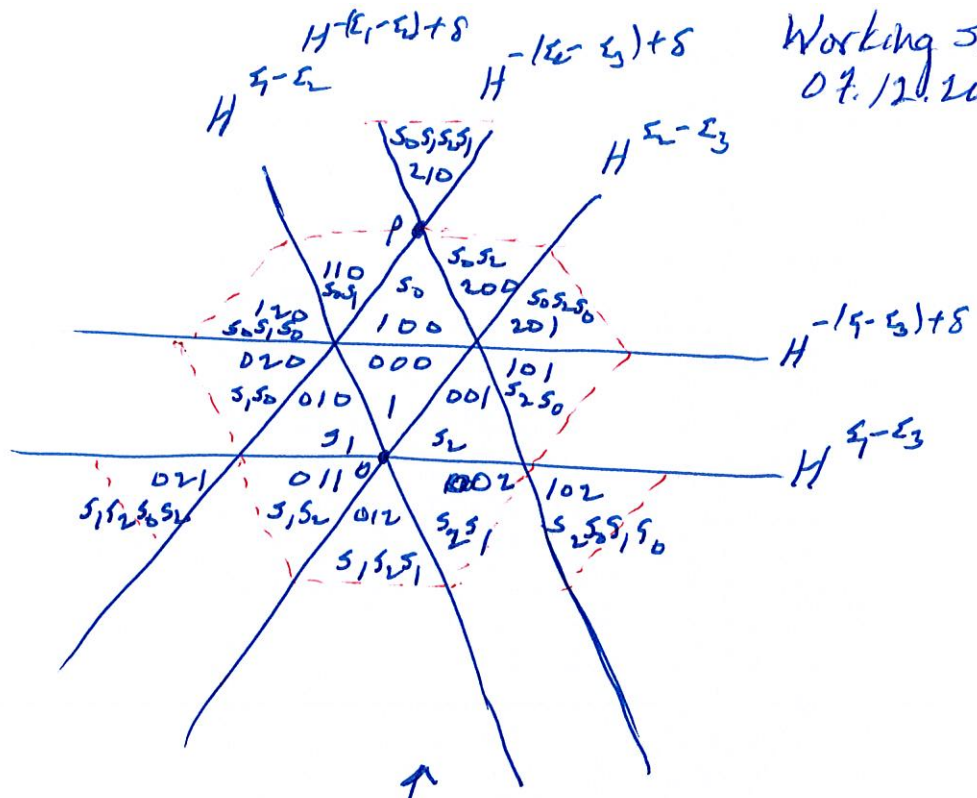 H^{-(ε_1-ε_2)+δ}
Working
07.12.20
H^{ε_1-ε_2}
H^{-(ε_2-ε_3)+δ}
H^{ε_2-ε_3}
s_0s_1s_2s_1
210
P
110
s_0s_1
s_0
s_0s_2
200
120
s_0s_1s_0
100
s_0s_2s_0
201
H^{-(ε_1-ε_3)+δ}
020
000
101
s_1s_0
010
1
001
s_2s_0
s_1
s_2
H^{ε_1-ε_3}
021
011
0
002
102
s_1s_2s_0s_2
s_1s_2
012
s_2s_1
s_2s_0s_1s_0
s_1s_2s_1
↑